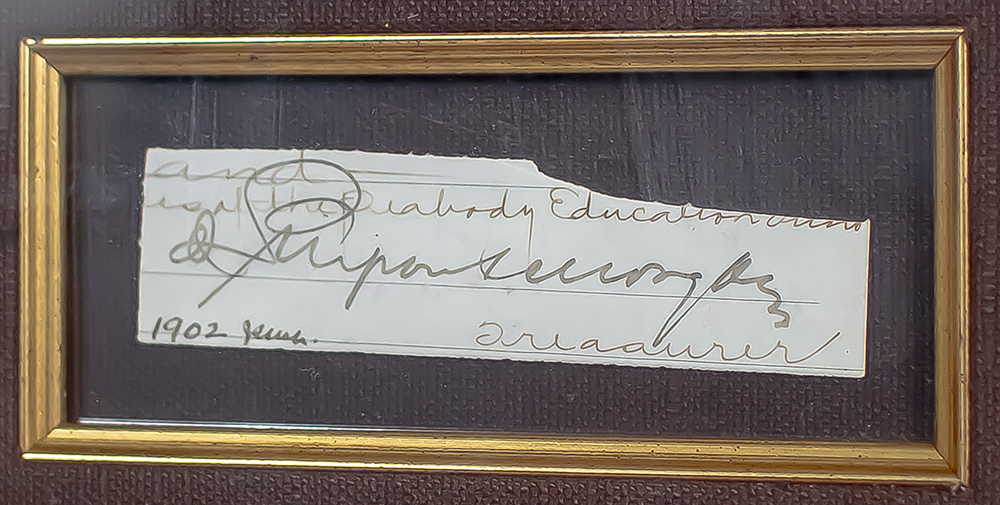 and
of the Peabody Education Fund
J Pierpont Morgan
Treasurer
1902